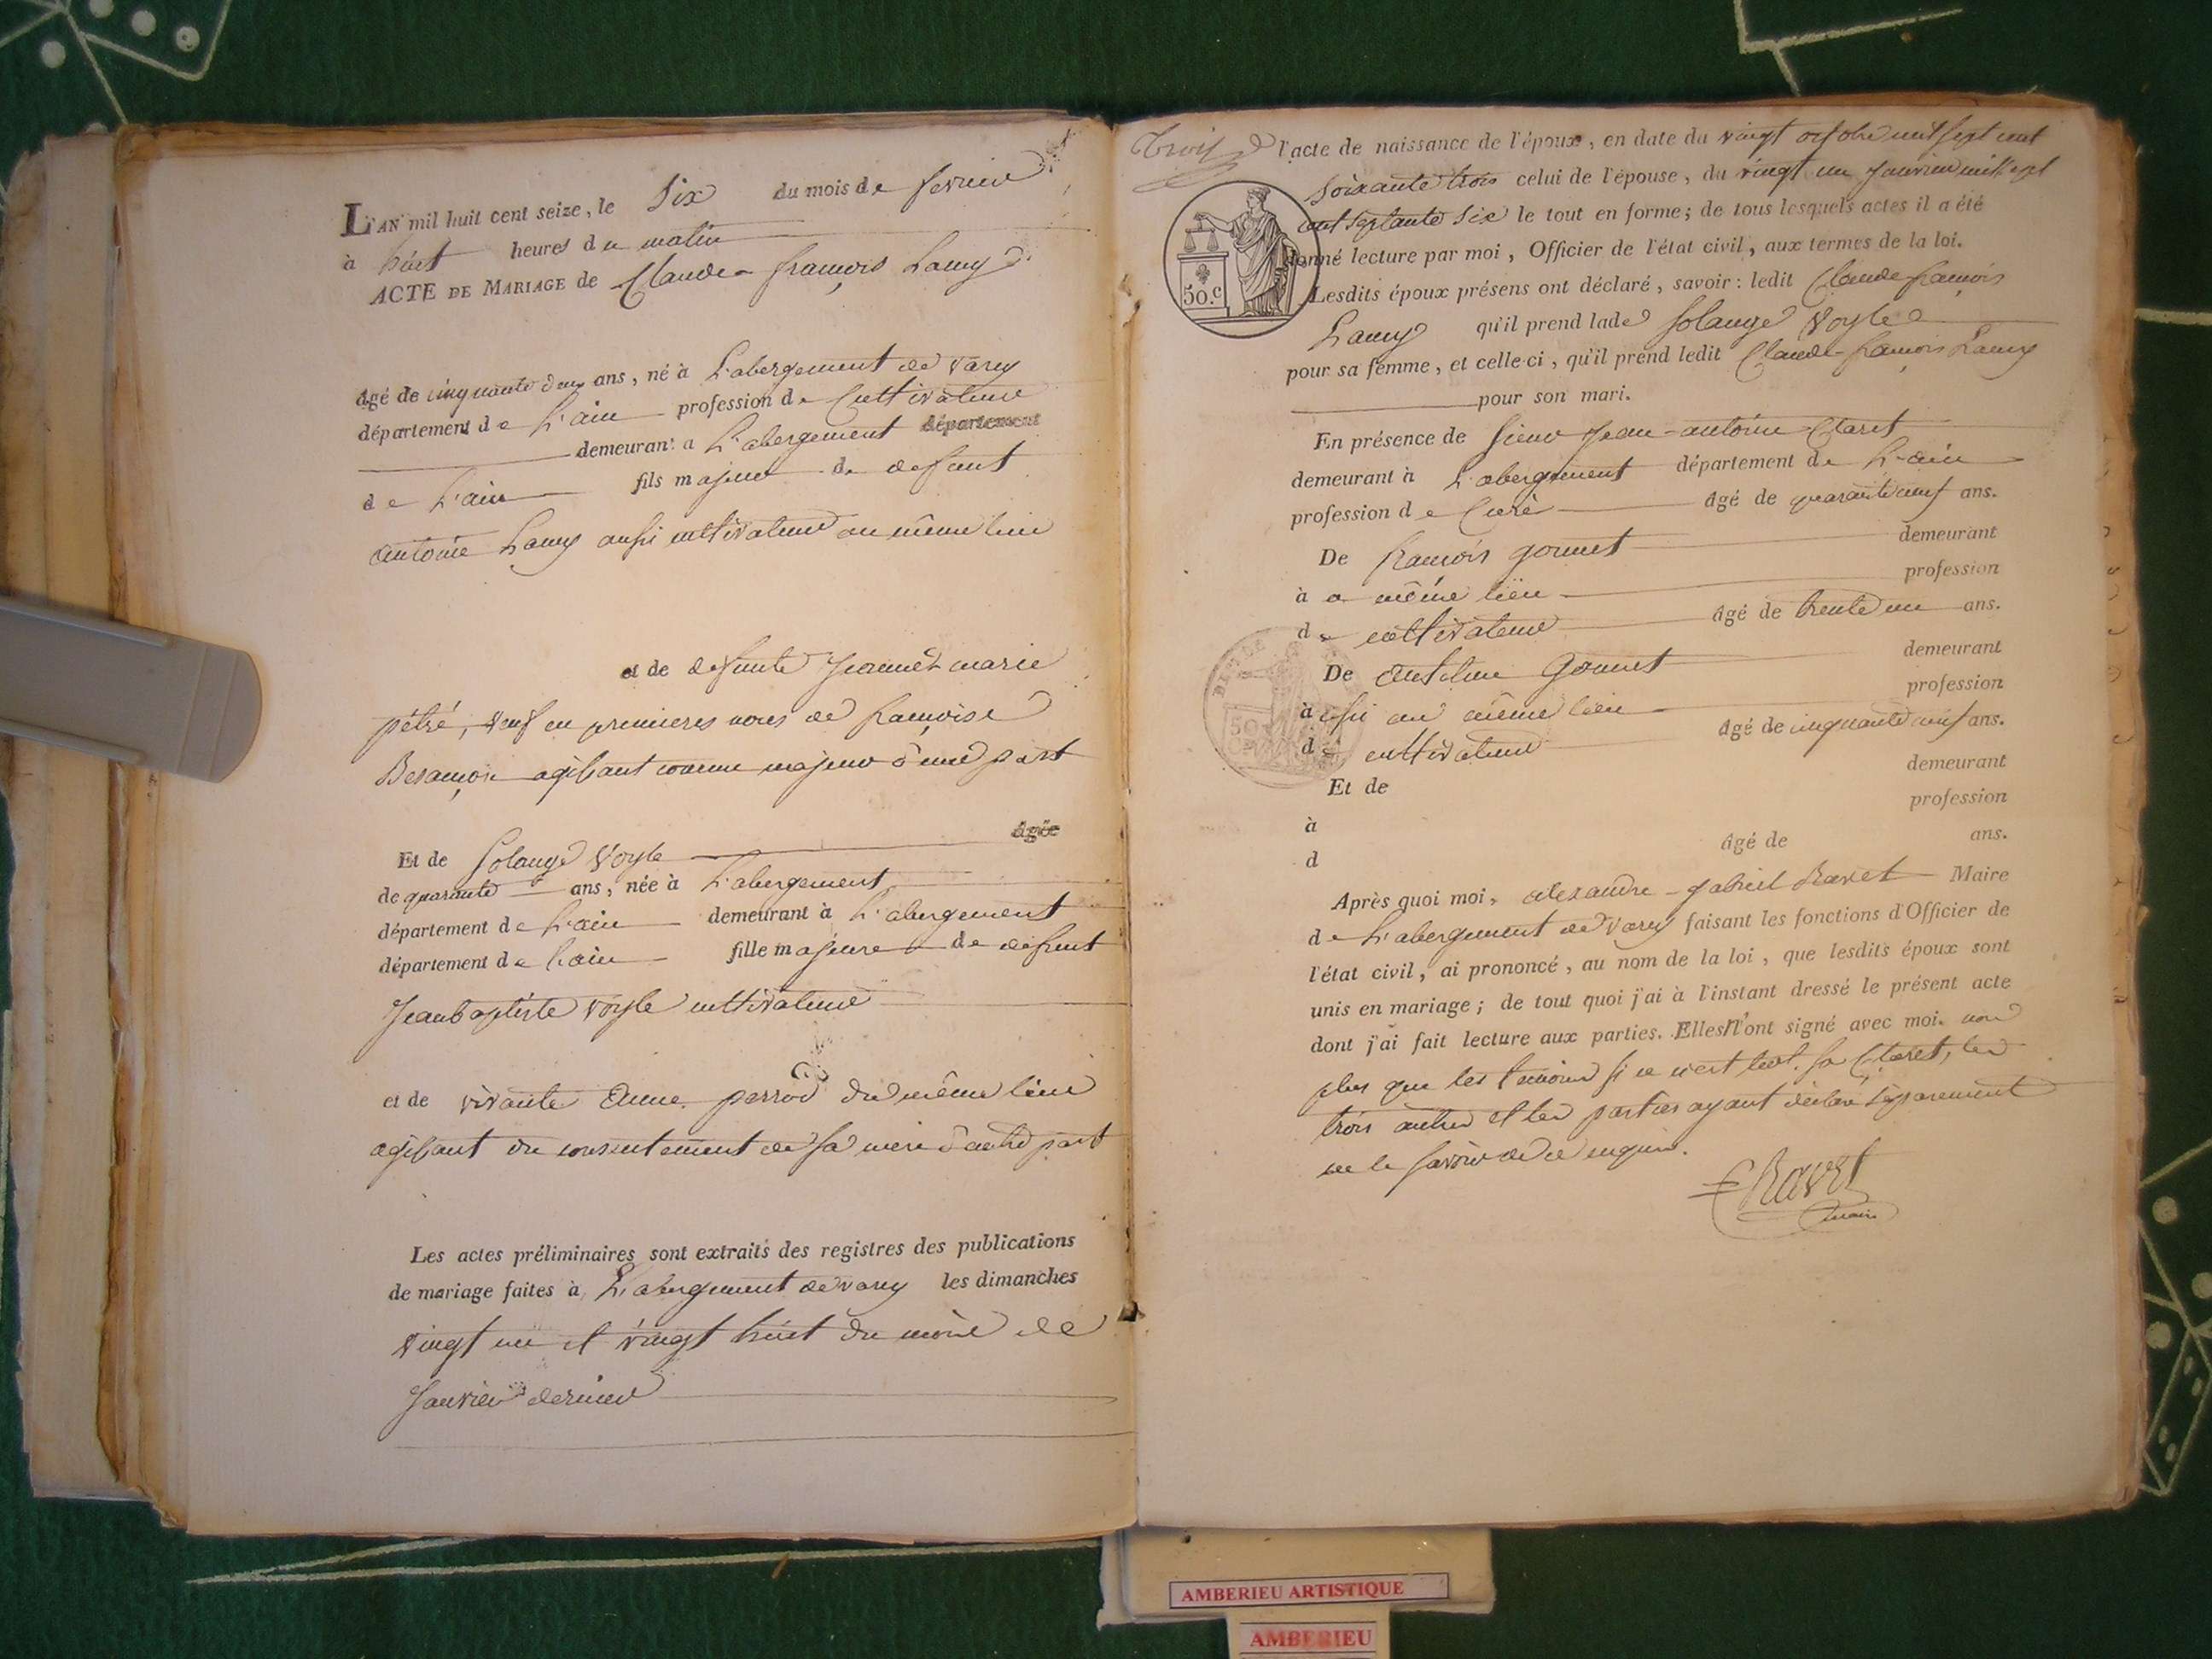 L'AN mil huit cent seize, le Six du mois de fevrier
à huit heures du matin
ACTE DE MARIAGE de Claude-françois Lamy
âgé de cinquante deux ans, né à L'abergement de varey
département de L'ain profession de Cultivateur
demeurant a L'abergement département
de L'ain fils majeur de defunt
antoine Lamy aussi cultivateur au même lieu
et de defunte marie
pétré, veuf en premieres noces de françoise
Besançon agissant comme majeur d'une part
Et de Solange Voyle âgée
de quarante ans, née à L'abergement
département de L'ain demeurant à L'abergement
département de L'ain fille majeure de defunt
Jean baptiste voyle cultivateur
et de vivante Anne perrod du même lieu
agissant du consentement de sa mere d'autre part
Les actes préliminaires sont extraits des registres des publications
de mariage faites à L'abergement de varey les dimanches
vingt un et vingt huit du mois de
Janvier dernier
Trois
l'acte de naissance de l'époux, en date du vingt octobre mil sept cent
soixante trois celui de l'épouse, du vingt un janvier mil sept
cent septante six le tout en forme; de tous lesquels actes il a été
donné lecture par moi, Officier de l'état civil, aux termes de la loi.
50.c
Lesdits époux présens ont déclaré, savoir: ledit Claude françois
Lamy qu'il prend lade Solange Voyle
pour sa femme, et celle-ci, qu'il prend ledit Claude-françois Lamy
pour son mari.
En présence de Sieur Jean-antoine Claret
demeurant à L'abergement département de L'ain
profession de Curé âgé de quarante neuf ans.
De françois gonnet demeurant
à a même lieu profession
de cultivateur âgé de trente un ans.
De antelme Gonnet demeurant
à au même lieu profession
de cultivateur âgé de cinquante neuf ans.
Et de demeurant
à profession
d âgé de ans.
Après quoi moi, alexandre-gabriel Ravet Maire
de L'abergement de varey faisant les fonctions d'Officier de
l'état civil, ai prononcé, au nom de la loi, que lesdits époux sont
unis en mariage; de tout quoi j'ai à l'instant dressé le présent acte
dont j'ai fait lecture aux parties. Elles n'ont signé avec moi. non
plus que les temoins si ce n'est led. sr Claret, les
trois autres et les parties ayant déclaré séparement
ne le savoir de ce enquis.
Ravet
maire
AMBERIEU ARTISTIQUE
AMBERIEU